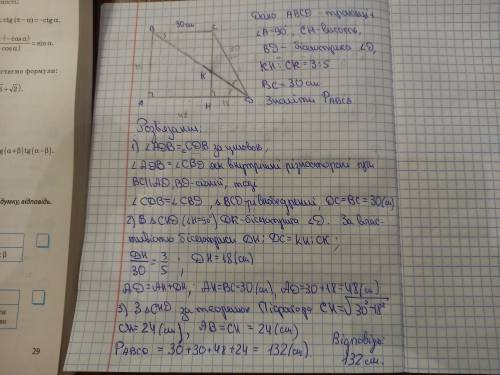 ctg(π − α) = −ctgα.
(−cosα)
−cosα) = sinα.
формули:
+ √2).
tg(α+β) tg(α−β)
відповідь.
29
B
30 см
C
K
A
H
D
Дано ABCD - трапеція
∠A=90°, CH-висота,
BD - бісектриса ∠D,
KH : CK = 3:5
BC = 30 см
Знайти P ABCD
Розв'язання:
1) ∠ADB = ∠CDB за умовою,
∠ADB = ∠CBD як внутрішні різносторонні при
BC||AD, BD-січній, тоді
∠CDB = ∠CBD, △BCD-рівнобедрений, DC = BC = 30 (см)
2) В △CHD (∠H=90°) DK-бісектриса ∠D. За влас-
тивістю бісектриси DH : DC = KH : CK ;
DH/30 = 3/5 ; DH = 18 (см)
AD = AH + DH, AH = BC = 30 (см), AD = 30 + 18 = 48 (см)
3) З △CHD за теоремою Піфагора CH = √30² − 18²
CH = 24 (см), AB = CH = 24 (см)
P ABCD = 30 + 30 + 48 + 24 = 132 (см)
Відповідь:
132 см.